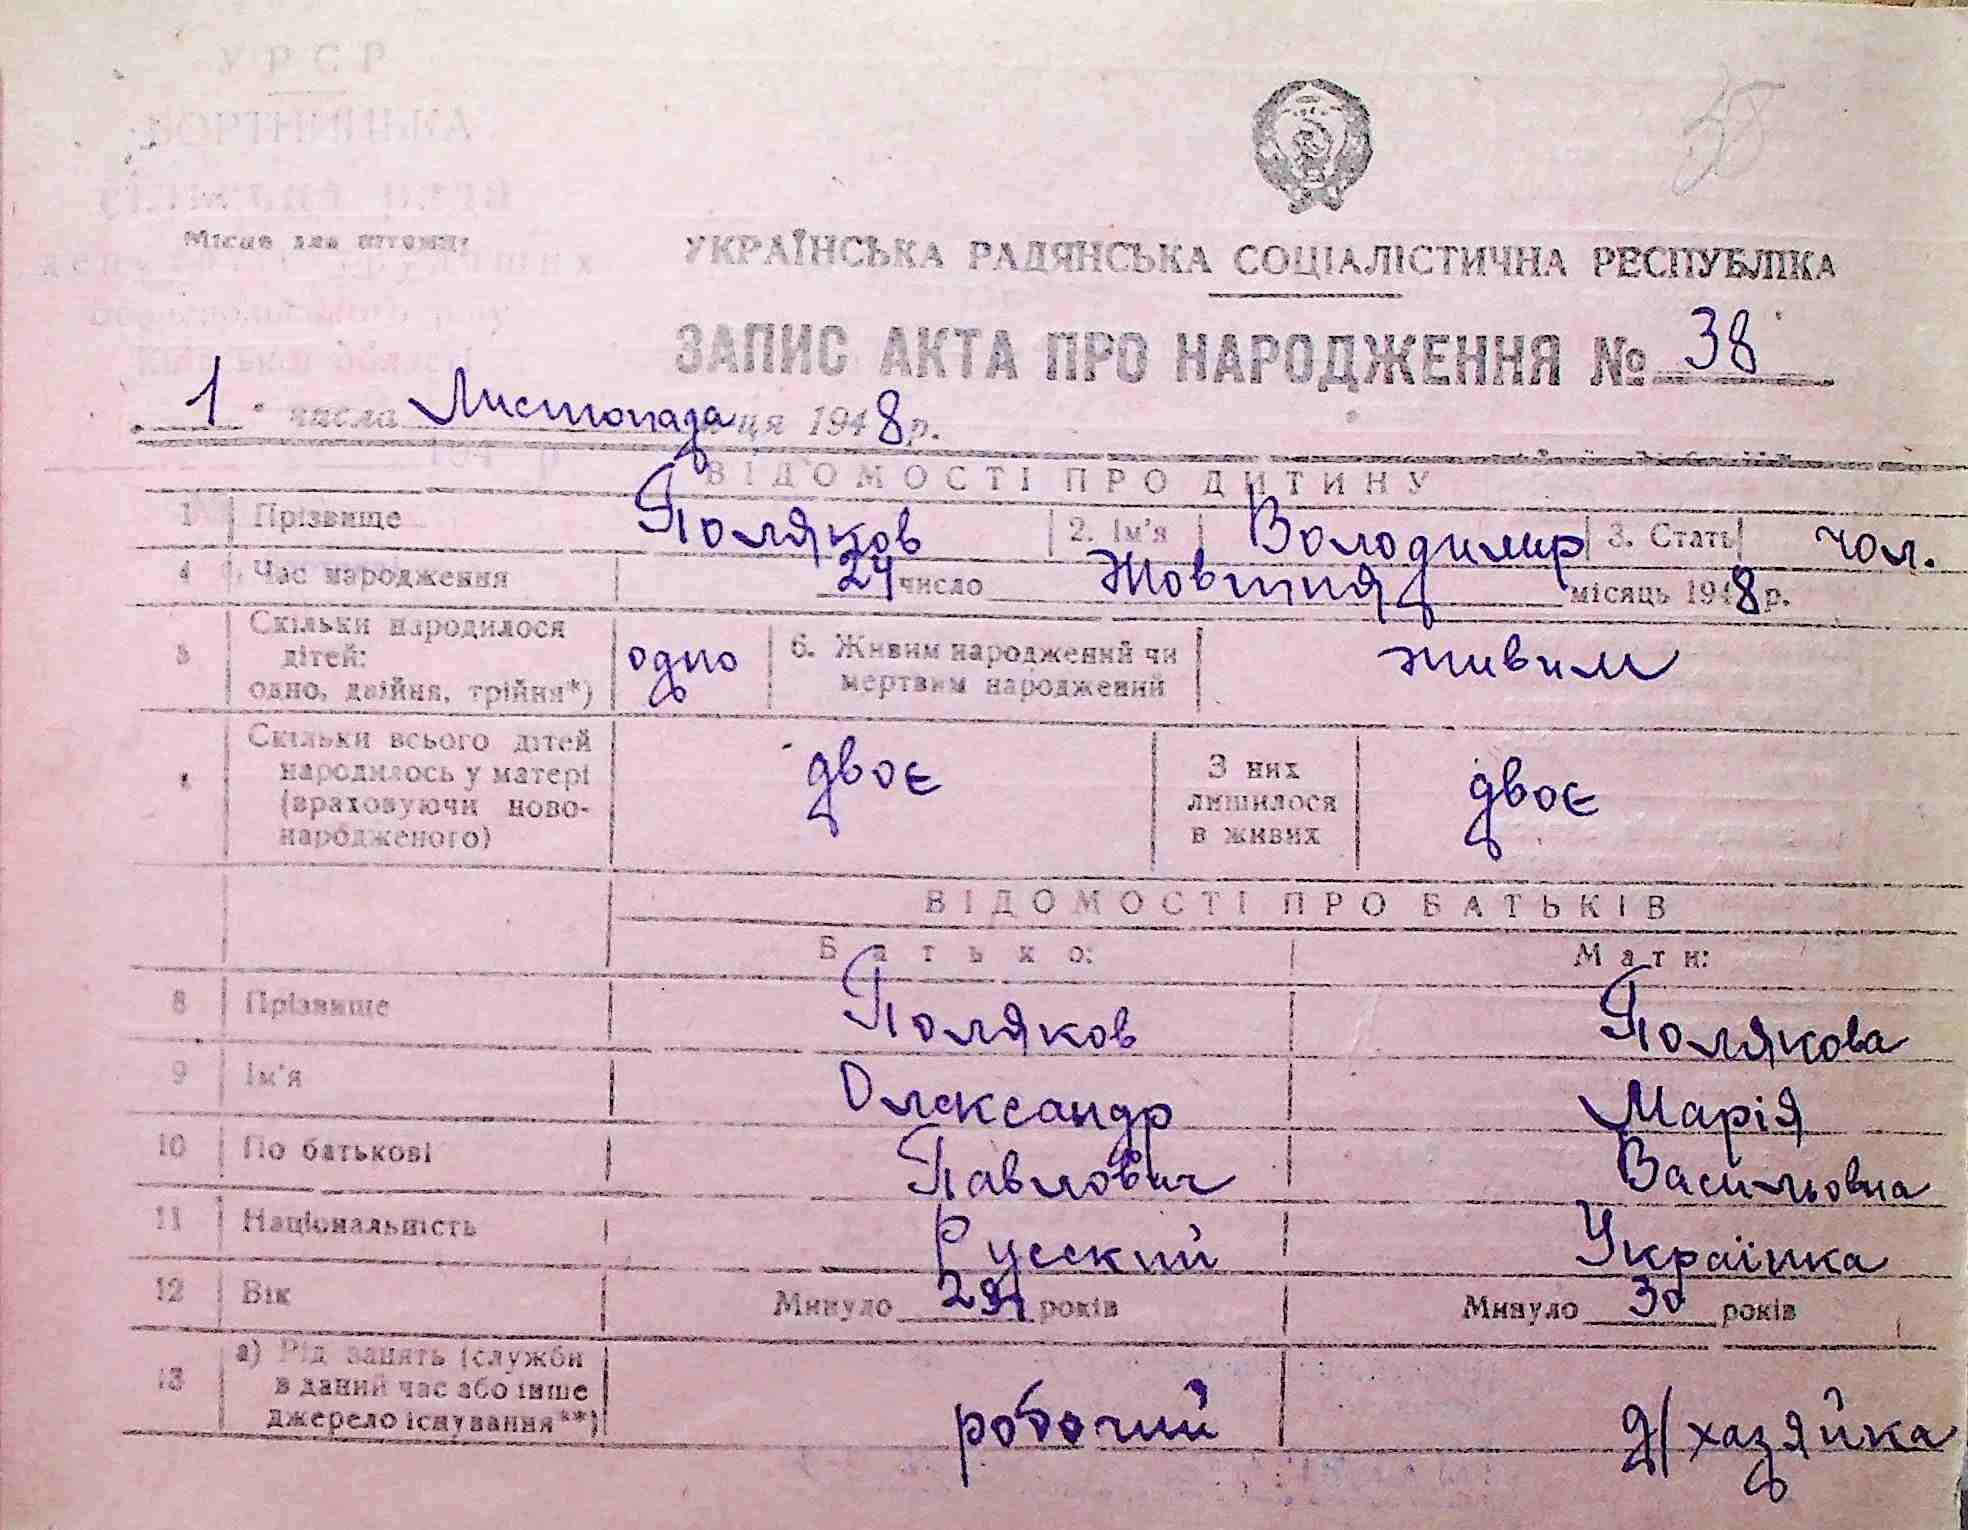 УРСР
БОРТНИЦЬКА
СІЛЬСЬКА РАДА
Місце для штампу
38
УКРАЇНСЬКА РАДЯНСЬКА СОЦІАЛІСТИЧНА РЕСПУБЛІКА
ЗАПИС АКТА ПРО НАРОДЖЕННЯ № 38
Київської області
1 числа Листопада ця 1948 р.
ВІДОМОСТІ ПРО ДИТИНУ
1 Прізвище Поляков 2. Ім'я Володимир 3. Стать чол.
4 Час народження 24 число Жовтня місяць 1948 р.
5 Скільки народилося дітей: одно, двійня, трійня*) одно 6. Живим народжений чи мертвим народжений живим
Скільки всього дітей народилось у матері (враховуючи новонародженого) двоє З них лишилося в живих двоє
ВІДОМОСТІ ПРО БАТЬКІВ
Батько: Мати:
8 Прізвище Поляков Полякова
9 Ім'я Олександр Марія
10 По батькові Павлович Васильовна
11 Національність Русский Українка
12 Вік Минуло років Минуло 30 років
13 а) Рід занять (служби в даний час або інше джерело існування**) робочий д/хазяйка